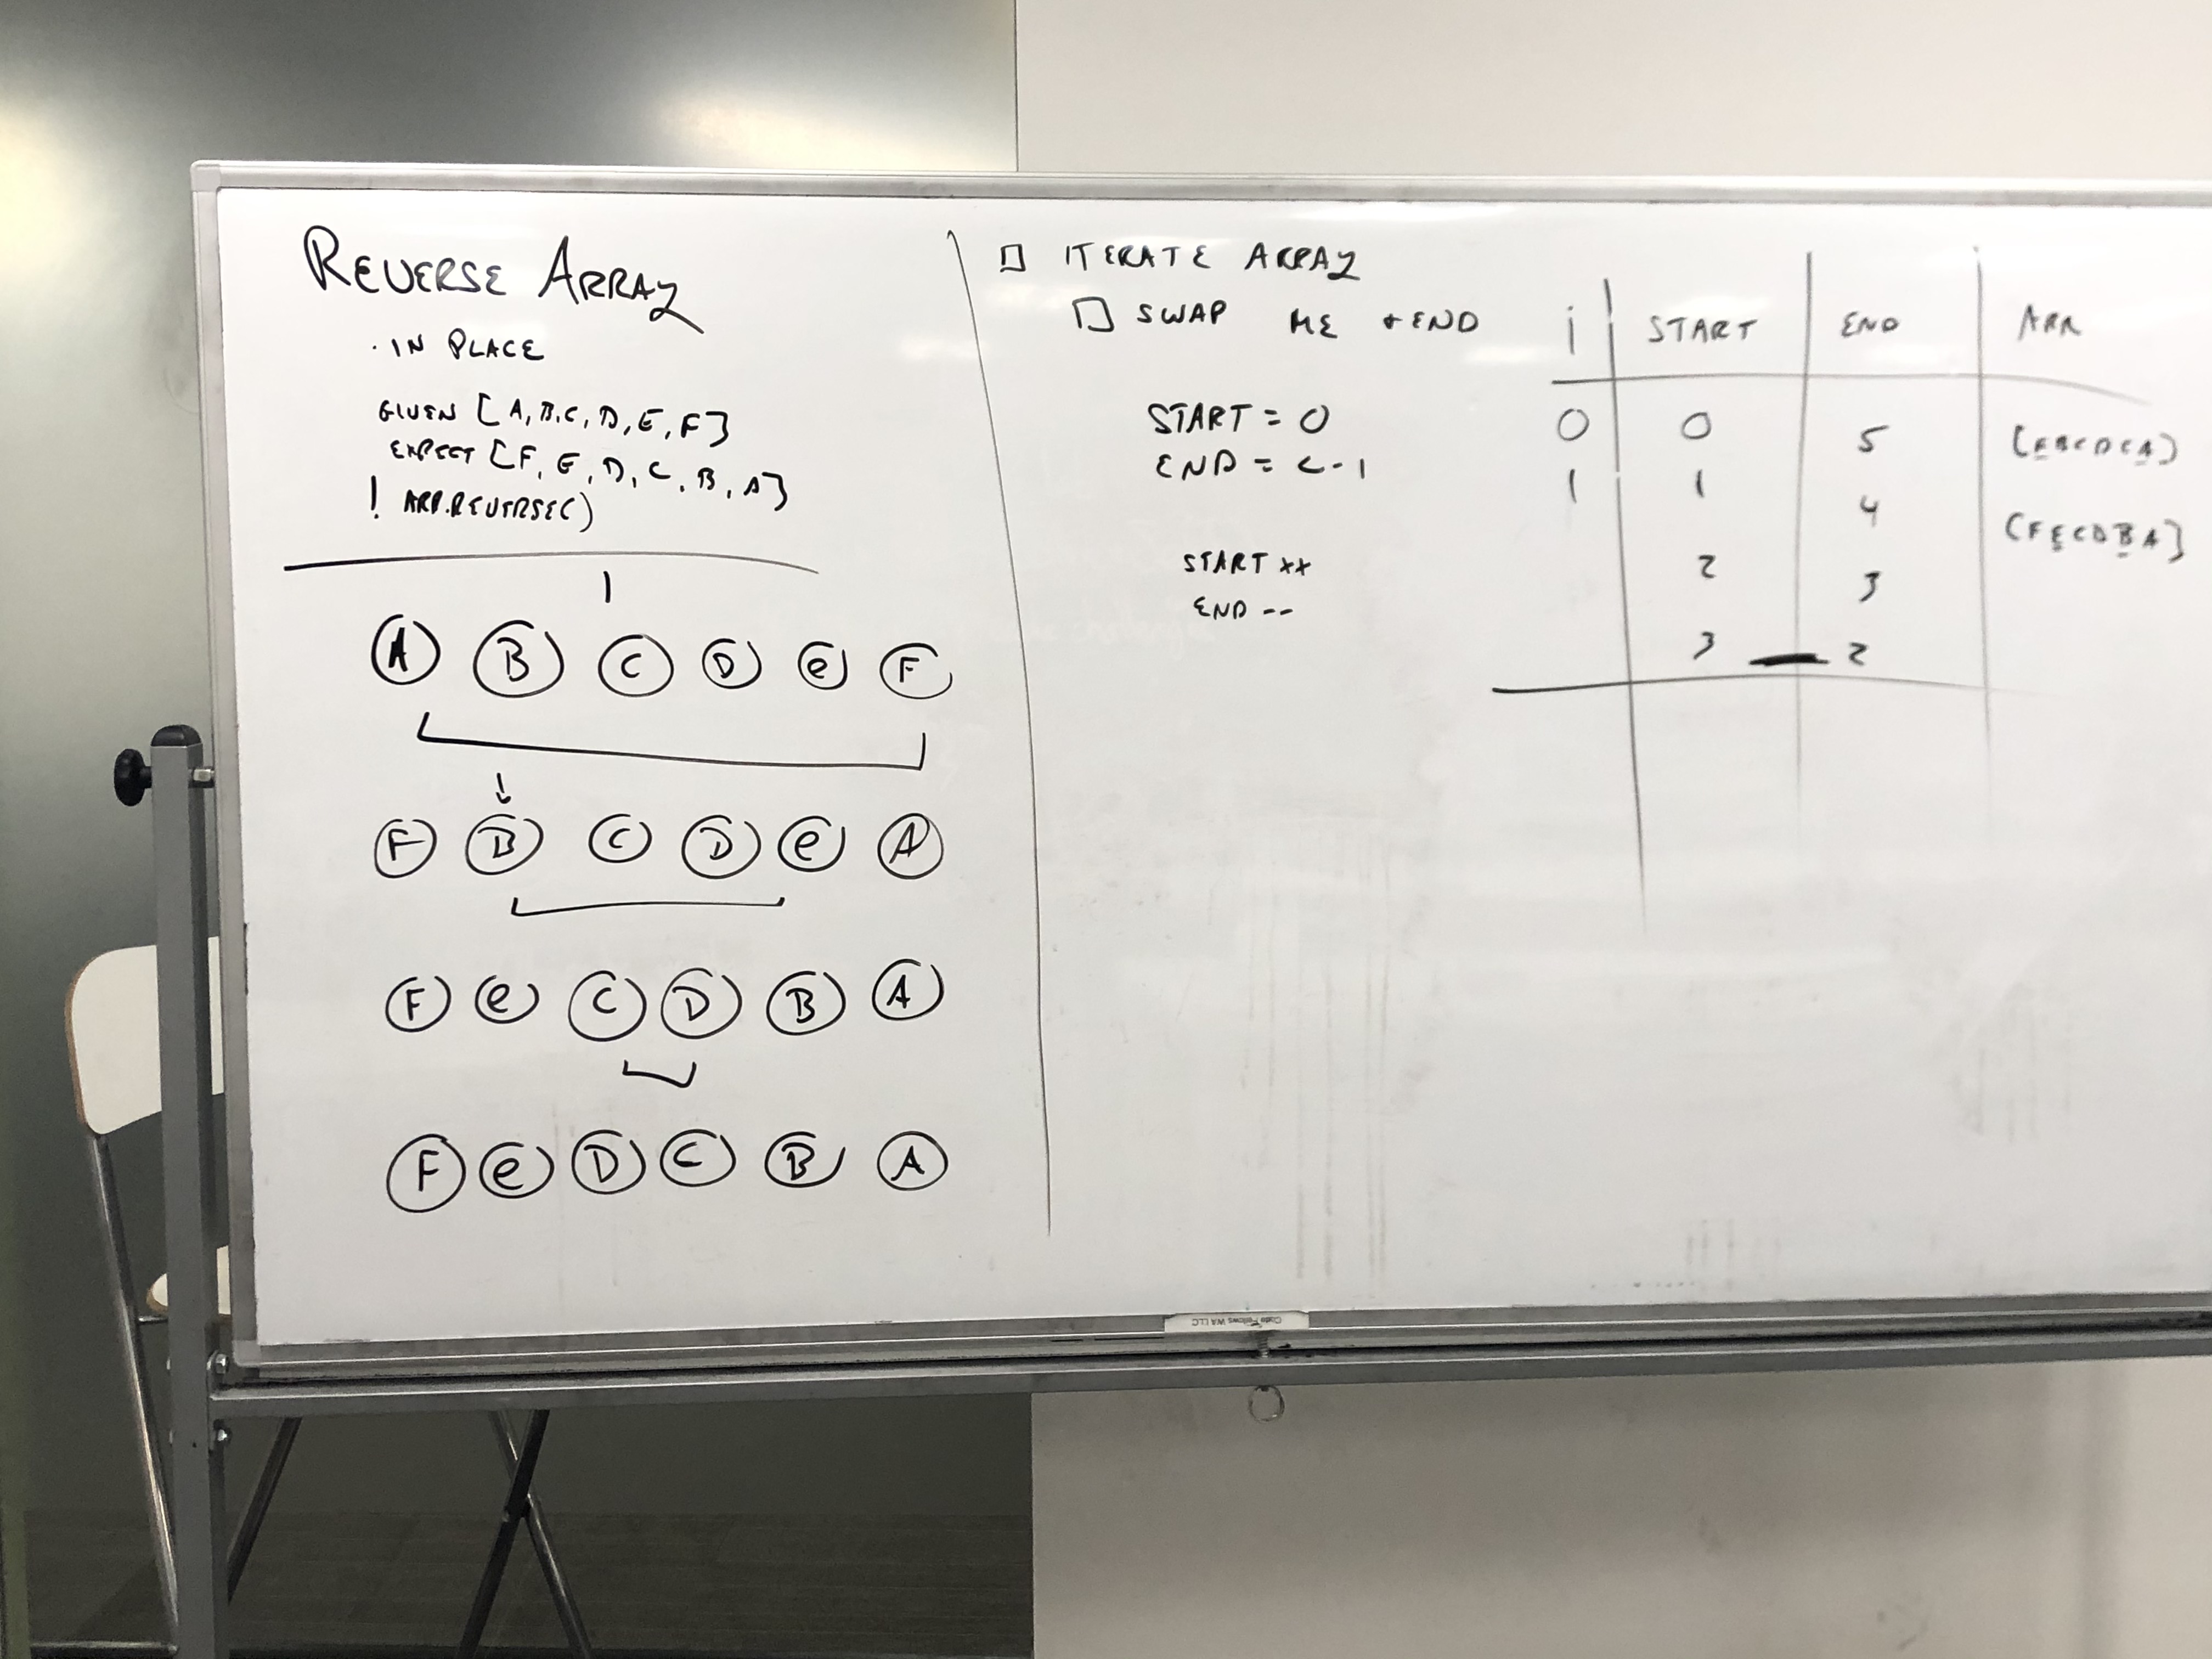 REVERSE ARRAY
· IN PLACE
GIVEN [A, B, C, D, E, F]
EXPECT [F, E, D, C, B, A]
! ARR.REVERSE()
A B C D e F
F B C D e A
F e C D B A
F e D C B A
ITERATE ARRAY
SWAP ME + END
START = 0
END = L-1
START ++
END --
i START END ARR
0 0 5
1 1 4 [FECDBA]
2 3
3 2
Code Fellows WA LLC